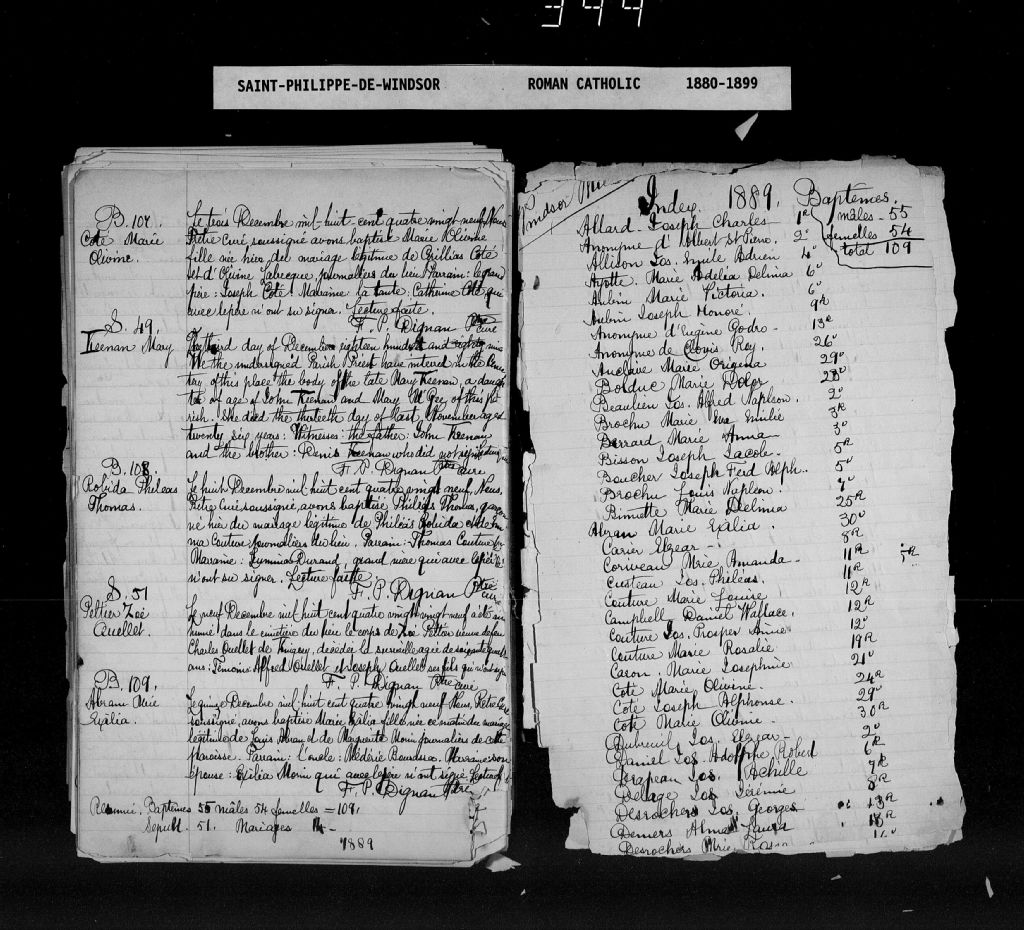 344
SAINT-PHILIPPE-DE-WINDSOR ROMAN CATHOLIC 1880-1899
B. 107.
Coté Marie
Olivine.
Le trois Decembre mil-huit-cent quatre vingt neuf, Nous
Prêtre Curé soussigné avons baptisé Marie Olivine
fille née hier du mariage légitime de Coté
et d' Labecque, journaliers du lieu. Parrain: le grand
père: Joseph Coté. Marraine: la tante: Catherine Coté qui
avec le père n'ont su signer. Lecture faite.
F. P. Dignan Ptre curé
S. 49.
Keenan Mary
The third day of December eighteen hundred and eighty nine
We the undersigned Parish Priest have interred in the Ceme
tery of this place the body of the late Mary Keenan, a daugh
ter of age of John Keenan and Mary of this Pa
rish. She died the thirtieth day of last November aged
twenty six years: Witnesses: the father: John Keenan
and the brother: Denis Keenan who did not sign
F. P. Dignan Ptre curé
B. 108.
Robida Phileas
Thomas.
Le huit Decembre mil huit cent quatre vingt neuf, Nous,
Prêtre Curé soussigné, avons baptisé Philéas Thomas, garçon
né hier du mariage légitime de Philéas Robida et de
Couture journaliers du lieu. Parrain: Thomas Couture
Marraine: Durand, grand mère qui avec le père
n'ont su signer. Lecture faite
F. P. Dignan Ptre curé
S. 51
Peltier Zoë
Ouellet.
Le neuf Decembre mil huit cent quatre vingt neuf a été in
humé dans le cimetière du lieu le corps de Zoë Peltier veuve de feu
Charles Ouellet de Kingsey, décédée la surveille agée de soixante
ans. Témoins: Alfred Ouellet et Joseph Ouellet ses fils qui
F. P. Dignan Ptre curé
B. 109.
Abram Mrie
Exélia.
Le quinze Decembre mil huit cent quatre vingt neuf Nous, Prêtre Curé
soussigné, avons baptisé Marie Exélia fille née ce matin du mariage
légitime de Louis Abram et de Marguerite Morin journaliers de cette
paroisse. Parrain: l'oncle: Médéric Bourdeau. Marraine son
épouse: Exélia Morin qui avec le père n'ont signé. Lecture f.
F. P. Dignan Ptre
Résumé. Baptêmes 55 mâles 54 femelles = 109.
Sépult. 51. Mariages 14
1889
Windsor
Index 1889. Baptemes.
males - 55
femelles 54
total 109
Allard Joseph Charles 1R
Anonyme d'Albert St Pierre. 2v
Allison Jos. Emile Adrien 4v
Ayotte. Marie Adelea Delima 6v
Aubin Marie Victoria. 6v
Aubin Joseph Honoré. 9R
Anonyme d'Eugène Godro - 13R
Anonyme de Clovis Rey. 26v
Anclave Marie Origina 29v
Bolduc Marie Dolor 28v
Beaulieu Jos. Alfred Napleon. 2v
Brochu Marie Eva Emilie 3R
Berrard Marie Anna 3v
Bisson Joseph Jacob 5R
Boucher Joseph Ferd Alph. 5v
Brochu Louis Napleon. 7v
Binnette Marie Delima 25R
Abran Marie Exélia. 30v
Carier Elzear - 8R
Corriveau Mrie Amanda - 11R
Custeau Jos. Philéas. 11R
Couture Marie Louise 12R
Campbell Daniel Wallace. 12R
Couture Jos. Prosper Aimé 12v
Couture Marie Rosalie 19R
Caron. Marie Josephine 21v
Coté Marie Olivine. 24R
Coté Joseph Alphonse. 29v
Coté Marie Olivine. 30R
Dubreuil Jos. Elzear - 2v
Daniel Jos. Adolphe Robert 6R
Drapeau Jos. Achille 7R
Delage Jos Jérémie 8R
Desrochers Jos. Georges 13R
Demers Alma Laura 18R
Desrochers Mrie Rosa